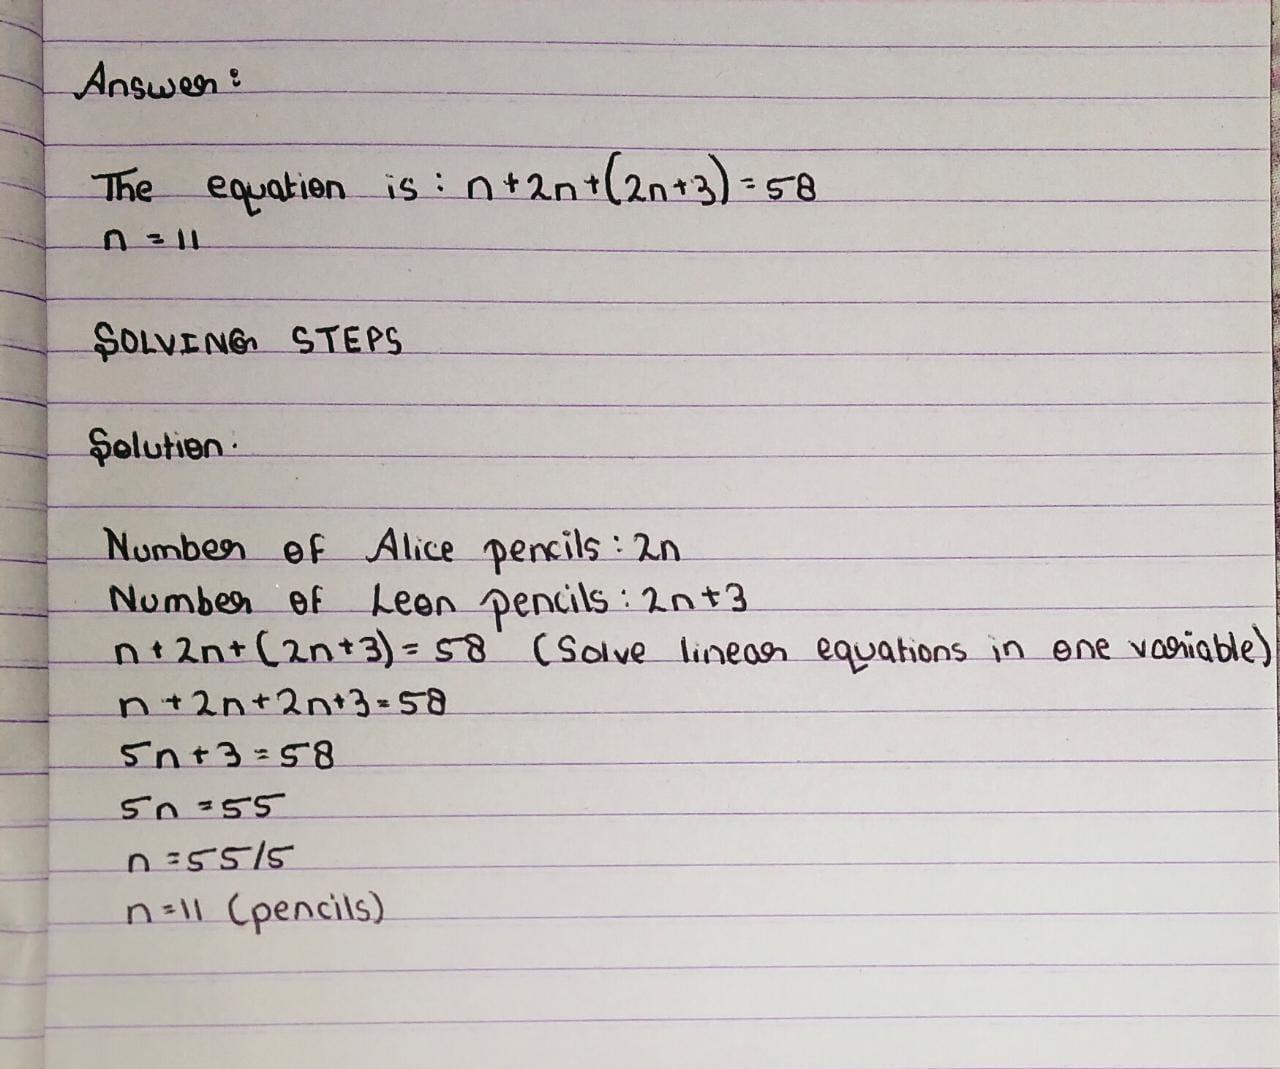 Answer:
The equation is: n+2n+(2n+3)=58
n=11
SOLVING STEPS
Solution.
Number of Alice pencils: 2n
Number of Leon pencils: 2n+3
n+2n+(2n+3)=58 (Solve linear equations in one variable)
n+2n+2n+3=58
5n+3=58
5n=55
n=55/5
n=11 (pencils)